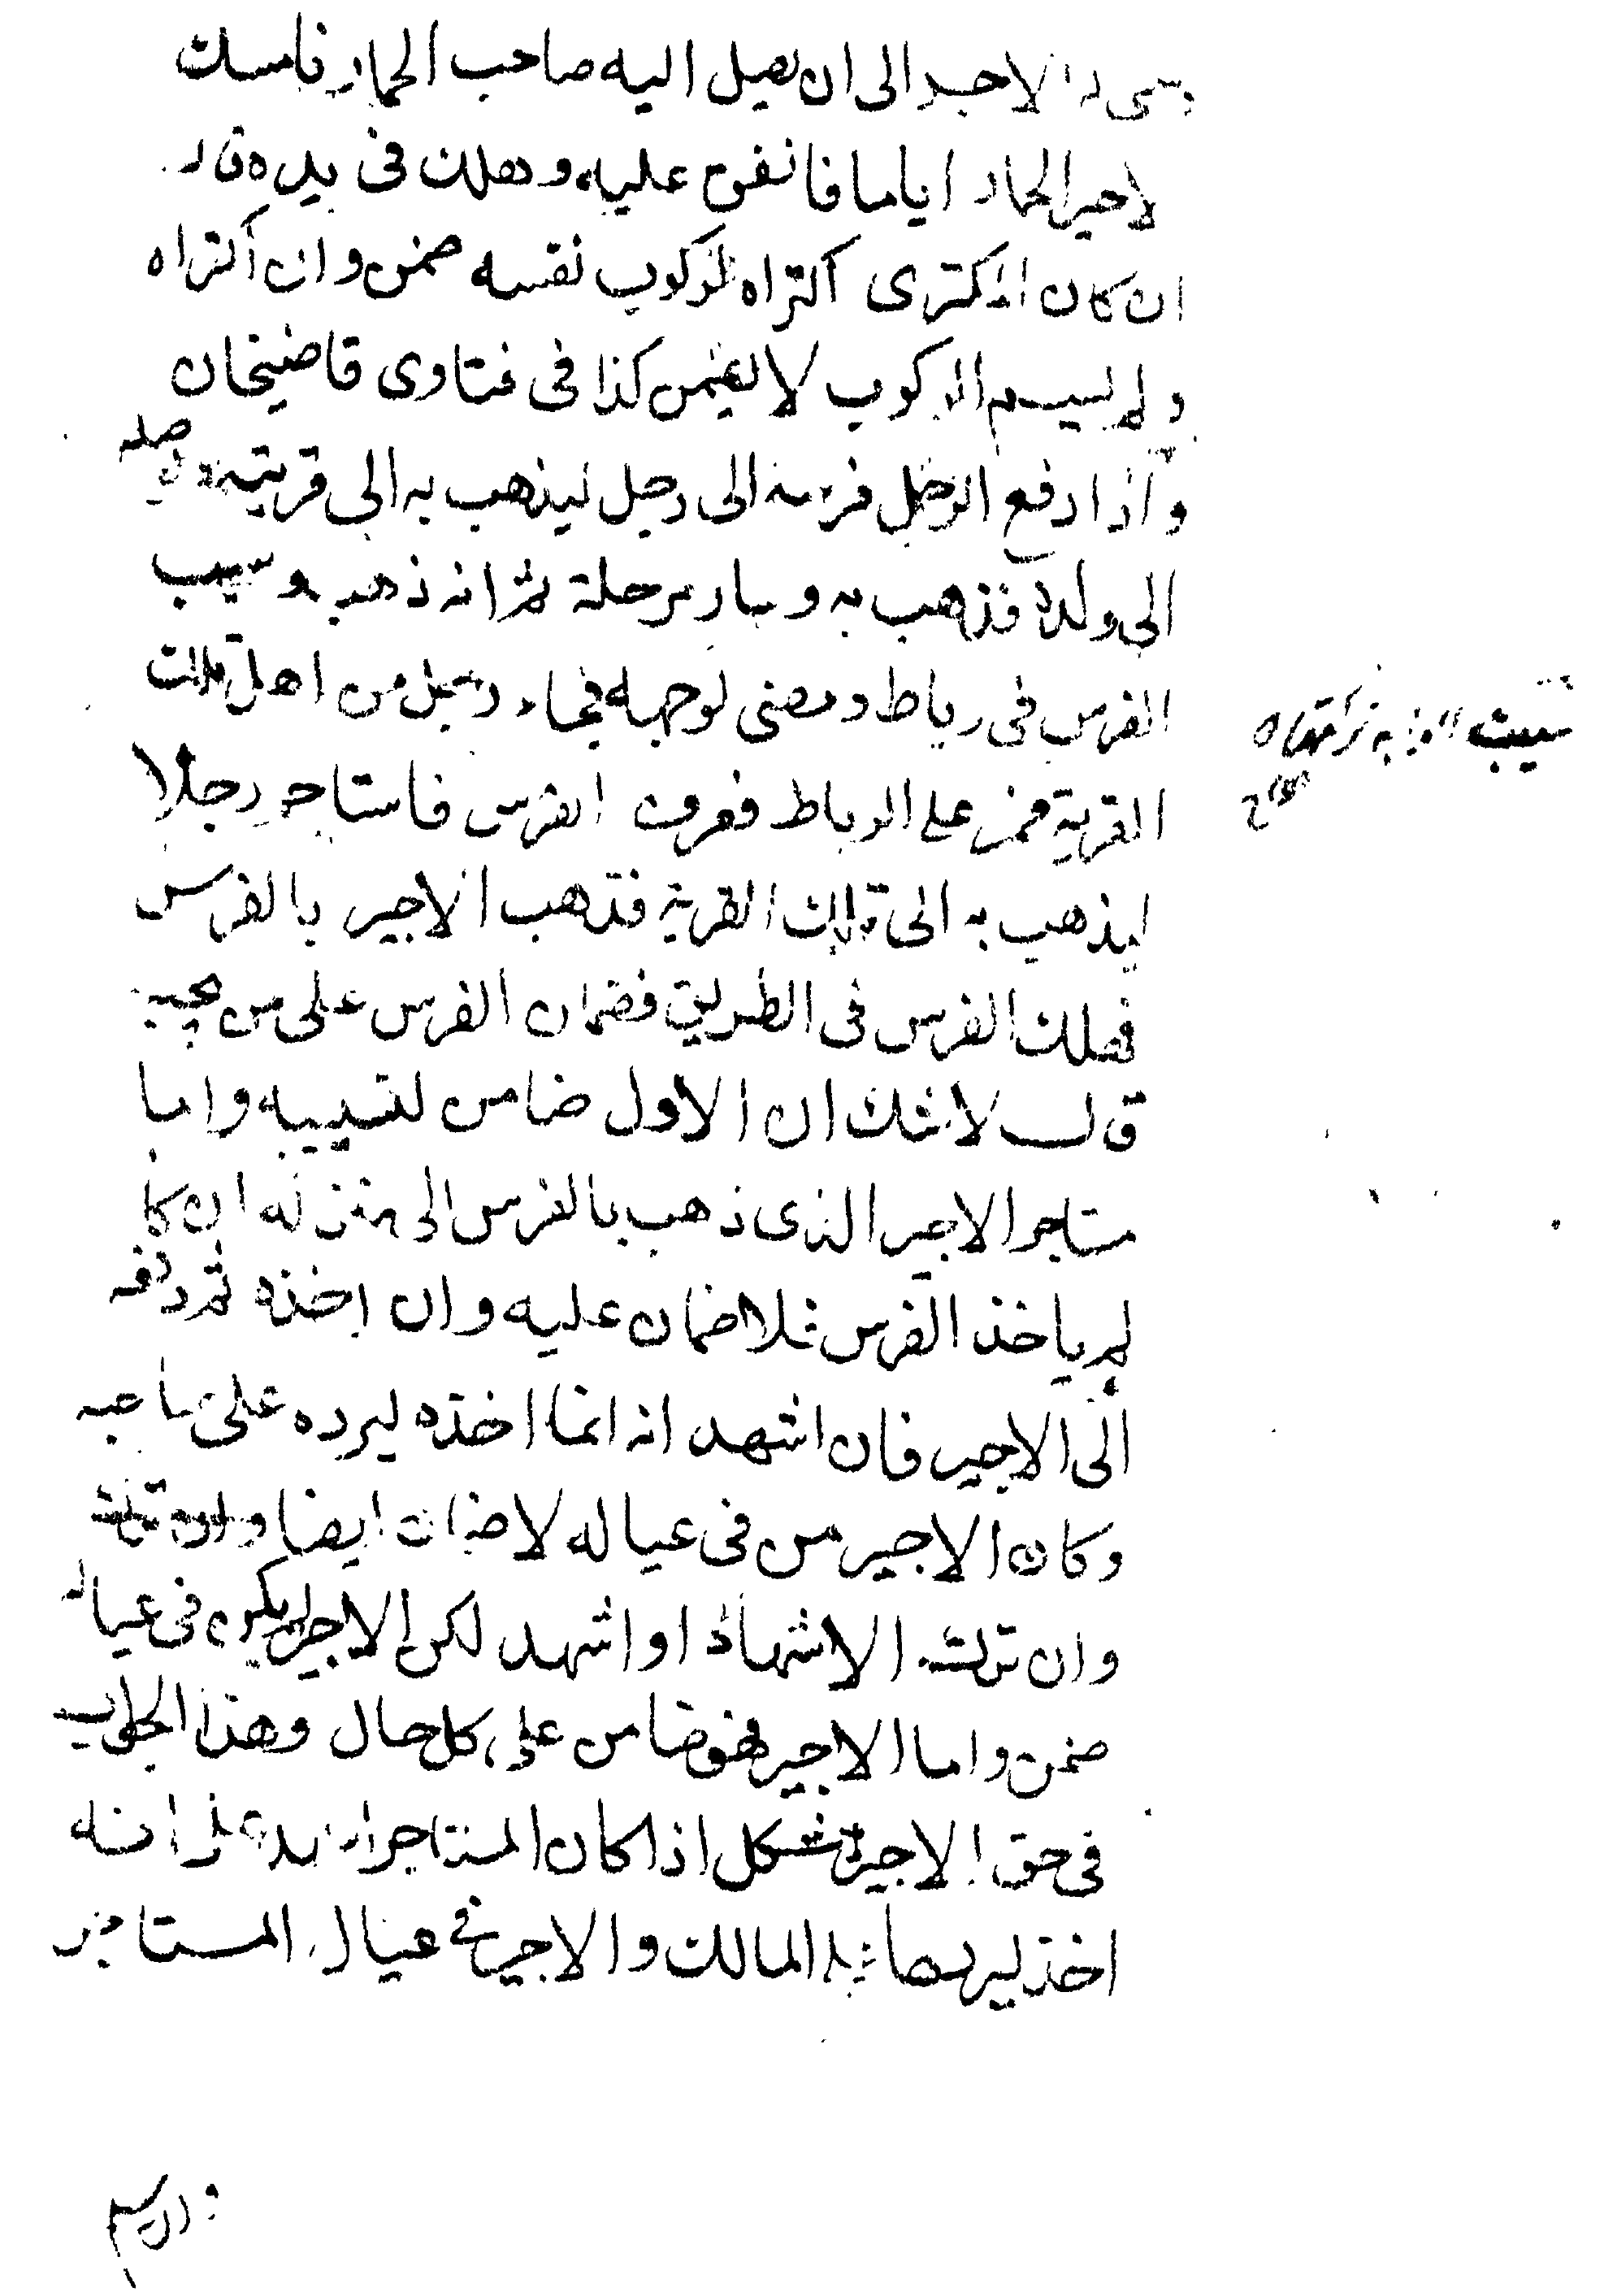 الاجير الى ان يصل اليه صاحب الحمار فامسك
لاجير الحمار اياما فانفق عليه وهلك فى يده قال
ان كان المكترى اكتراه لركوب نفسه ضمن وان اكتراه
ولم يسم الركوب لا يضمن كذا فى فتاوى قاضيخان
واذا دفع الرجل فرسه الى رجل ليذهب به الى قريته ويوصله
الى ولده فذهب به وسار مرحلة ثم انه ذهب وسيب
الفرس فى رباط ومضى لوجهه فجاء رجل من اهل تلك
القرية فمر على الرباط فعرف الفرس فاستاجر رجلا
ليذهب به الى تلك القرية فذهب الاجير بالفرس
فهلك الفرس فى الطريق فضمان الفرس على من يجب
قال لا شك ان الاول ضامن لتسييبه واما
مستاجر الاجير الذى ذهب بالفرس الى منزله ان كا
لم ياخذ الفرس فلا ضمان عليه وان اخذه ثم دفعه
الى الاجير فان اشهد انه انما اخذه ليرده على صاحبه
وكان الاجير من فى عياله لا ضمان ايضا وان ترك
وان ترك الاشهاد او اشهد لكن الاجير لم يكن فى عياله
ضمن واما الاجير فهو ضامن على كل حال وهذا الجواب
فى حق الاجير مشكل اذا كان المستاجر اشهد على انه
اخذ ليردها على المالك والاجير فى عيال المستاجر
سييت الدابة
وان لم